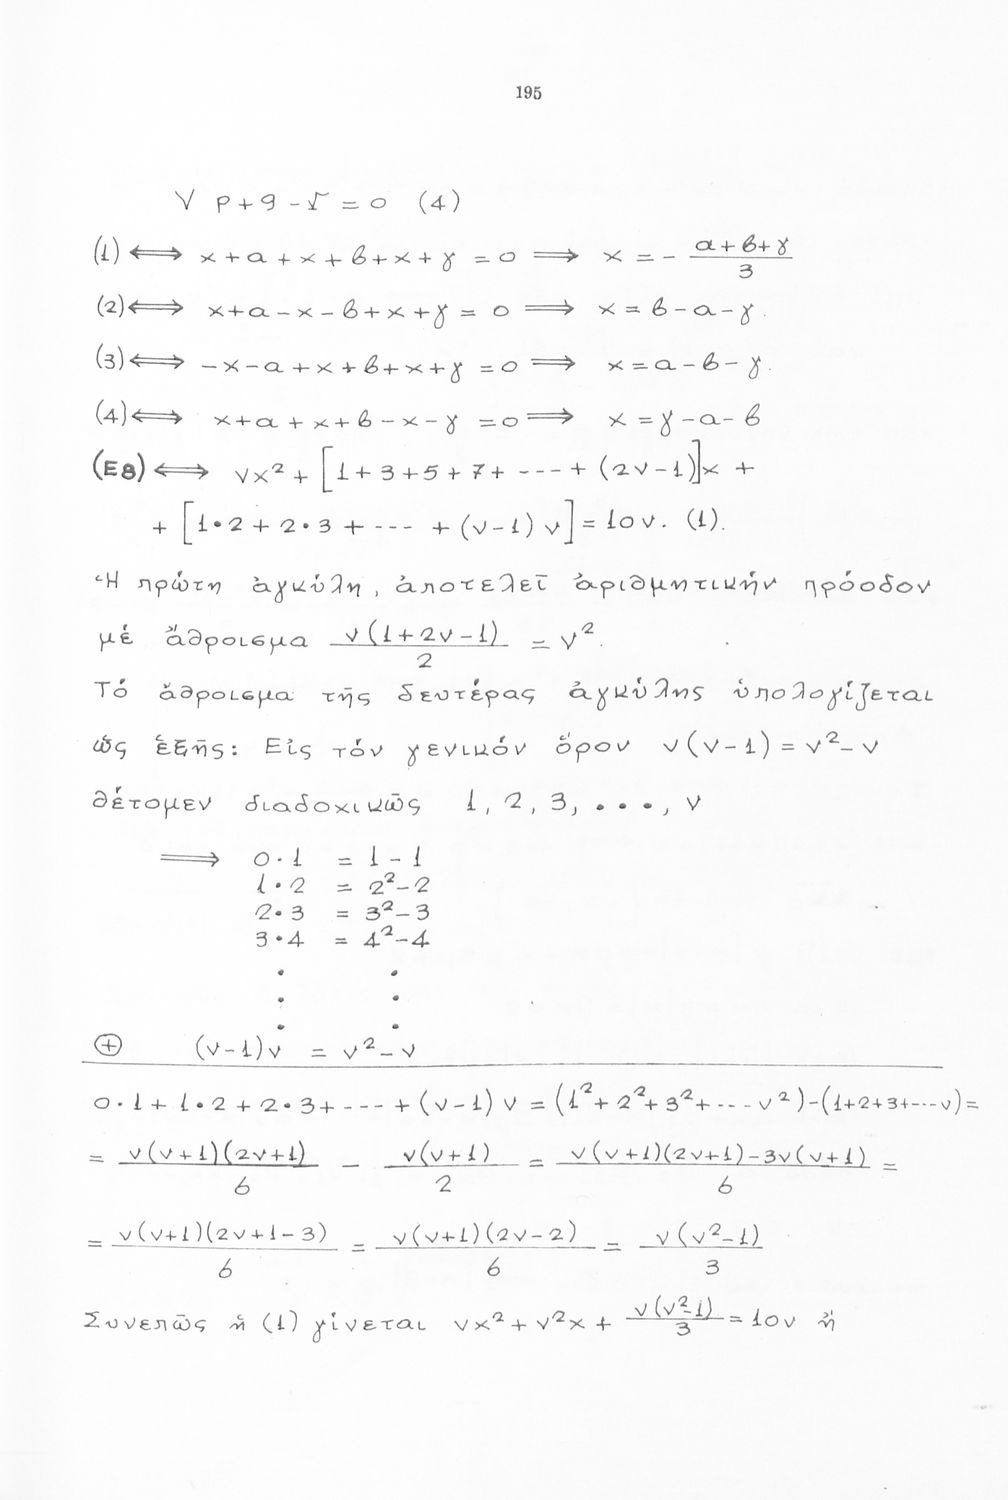 195
V p+q-r=0 (4)
(1) ⟺ x+α+x+β+x+γ=0 ⟹ x=-(α+β+γ)/3
(2) ⟺ x+α-x-β+x+γ=0 ⟹ x=β-α-γ.
(3) ⟺ -x-α+x+β+x+γ=0 ⟹ x=α-β-γ.
(4) ⟺ x+α+x+β-x-γ=0 ⟹ x=γ-α-β
(E8) ⟺ νx²+[1+3+5+7+---+(2ν-1)]x +
+[1•2+2•3+---+(ν-1)ν]=10ν. (1).
Ἡ πρώτη ἀγκύλη, ἀποτελεῖ ἀριθμητικήν πρόοδον
μέ ἄθροισμα ν(1+2ν-1)/2 = ν².
Τό ἄθροισμα τῆς δευτέρας ἀγκύλης ὑπολογίζεται
ὡς ἑξῆς: Εἰς τόν γενικόν ὅρον ν(ν-1)=ν²-ν
θέτομεν διαδοχικῶς 1, 2, 3, ..., ν
⟹ 0·1 = 1-1
1•2 = 2²-2
2•3 = 3²-3
3•4 = 4²-4
• •
• •
• •
⊕ (ν-1)ν = ν²-ν
0·1+1•2+2•3+---+(ν-1)ν=(1²+2²+3²+---ν²)-(1+2+3+---ν)=
= ν(ν+1)(2ν+1)/6 - ν(ν+1)/2 = ν(ν+1)(2ν+1)-3ν(ν+1)/6 =
= ν(ν+1)(2ν+1-3)/6 = ν(ν+1)(2ν-2)/6 = ν(ν²-1)/3
Συνεπῶς ἡ (1) γίνεται νx²+ν²x+ν(ν²-1)/3=10ν ἤ